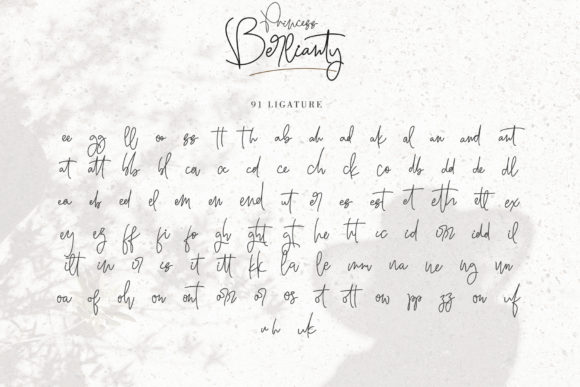 Princess
Berlianty
91 LIGATURE
ee gg ll oo ss tt th ab ah ad ak al an and ant
at att bb bl ca cc cd ce ch ck co db dd de dl
ea eb ed el em en end ut er es est et eth ett ex
ey ez ff fi fo gh ght gt he ht ic id idd il
ilt in ir is it itt kk la le mm na ne ng nn
oa of oh on ont or os ot ott ow pp zz on uf
uh uk